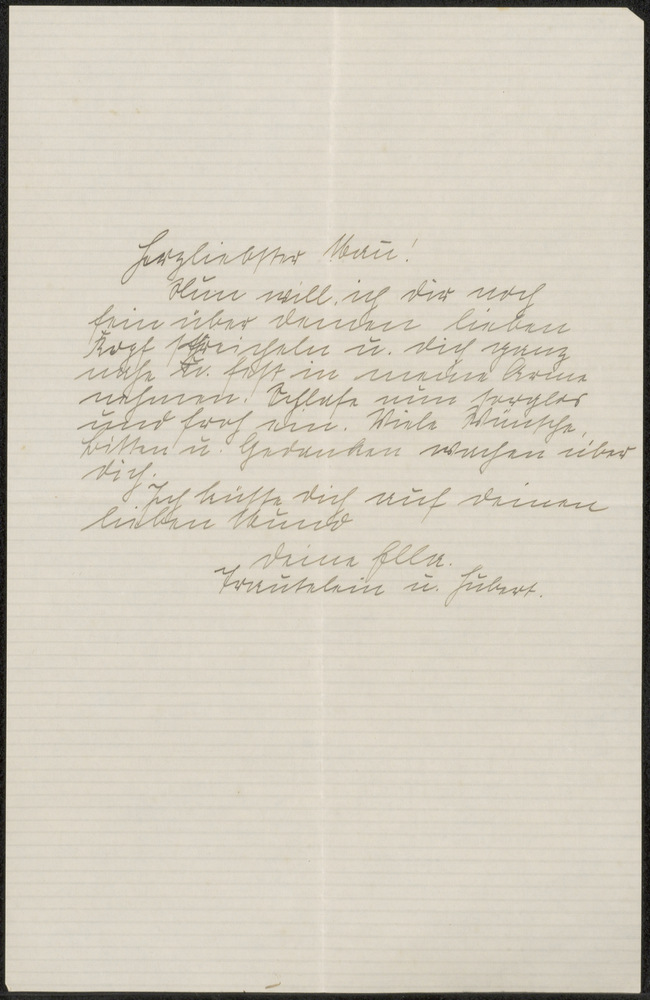 Herzliebster Mau!
Nun will ich dir noch
fein über deinen lieben
Kopf streicheln u. dich ganz
nahe u. fest in meine Arme
nehmen. Schlafe nun sorglos
und froh ein. Viele Wünsche,
bitten u. Gedanken wachen über
dich.
Ich küsse dich auf deinen
lieben Mund
deine Ella.
Trautelein u. Hubert.